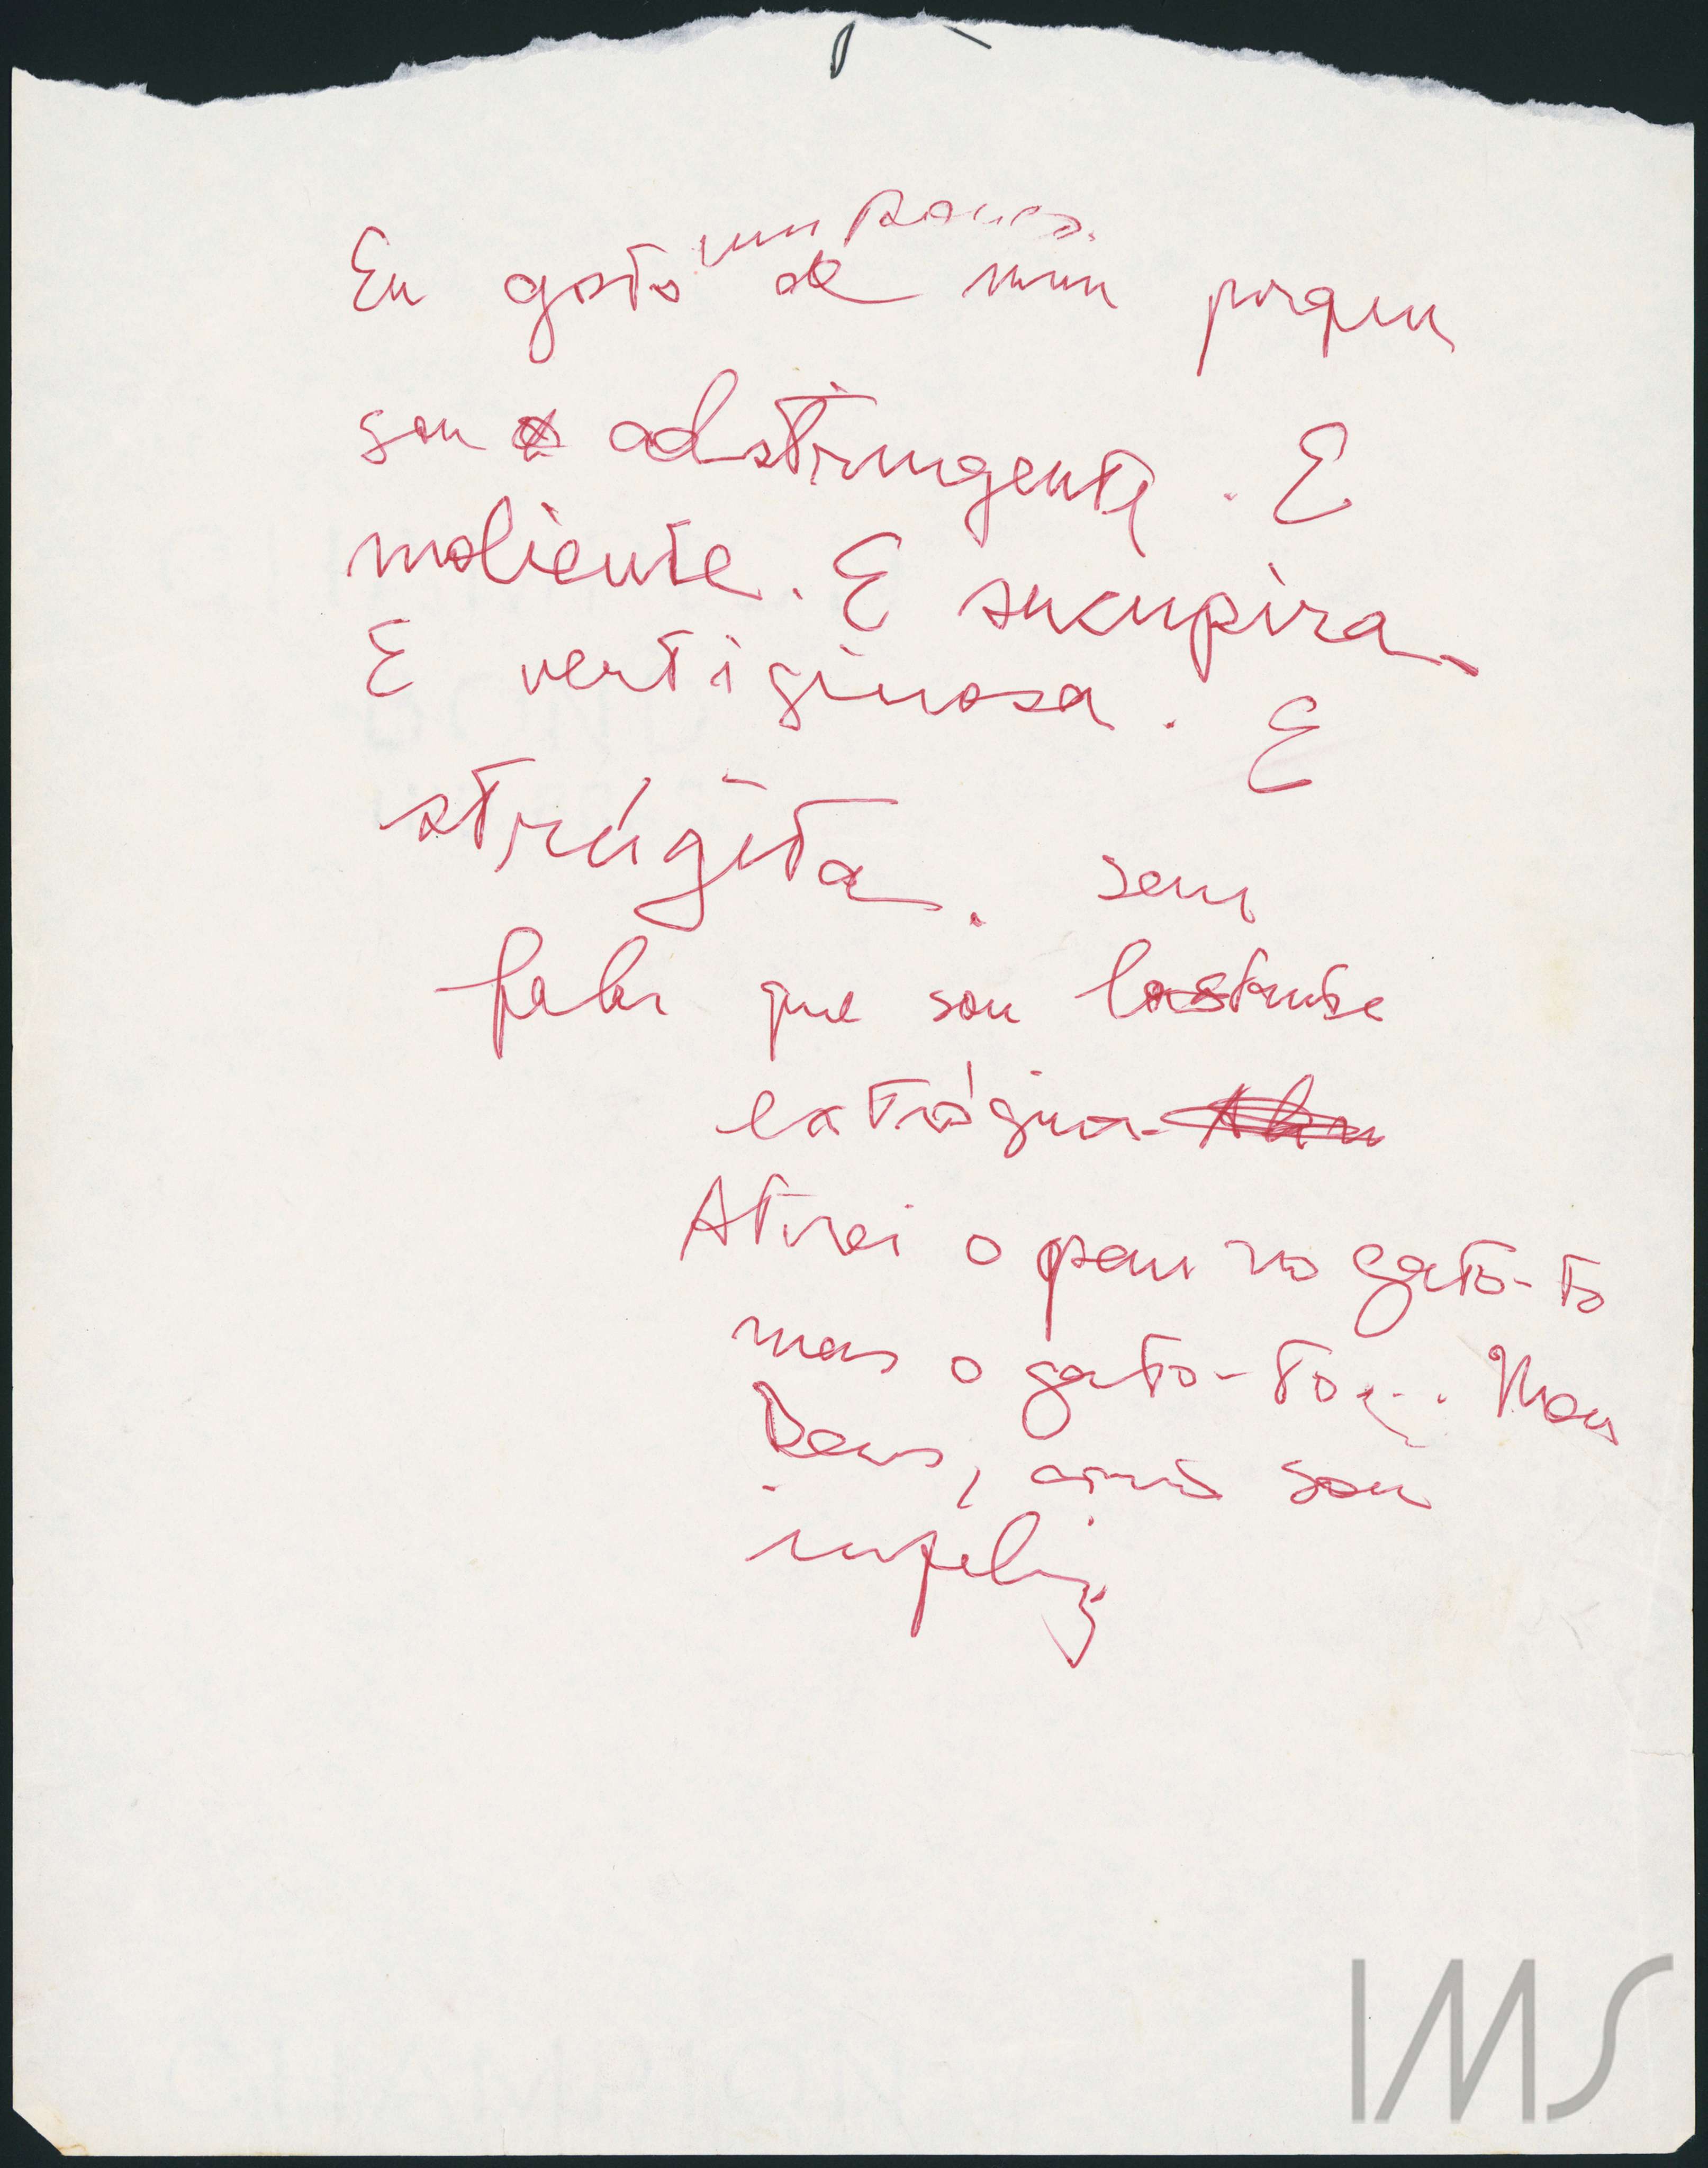 um pouco
Eu gosto de mim porque
sou adstringente. E
moliente. E sucupira.
E vertiginosa. E
strúgita. Sem
falar que sou bastante
extrógina.
Atirei o pau no gato-to
mas o gato-to... Meu
Deus, como sou
infeliz
IMS